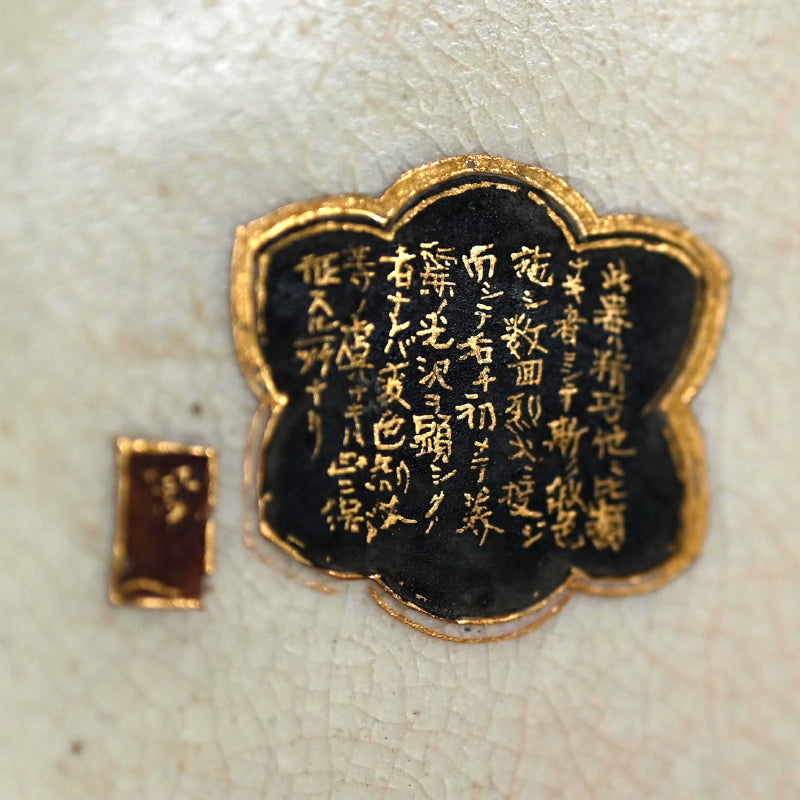 此器ハ精巧他ニ比類
ナキ音ニシテ斯ノ彩色
施シ数回烈火ニ投ジ
而シテ右ヲ初メテ善
ノ光沢ヲ顕シタ
者ナレバ変色無
等ノ虞ハナキハ
証スル所ナリ